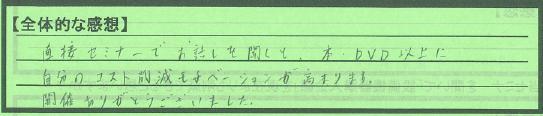 【全体的な感想】
直接セミナーでお話しを聞くと、本・DVD以上に
自分のコスト削減モチベーションが高まります。
開催ありがとうございました。